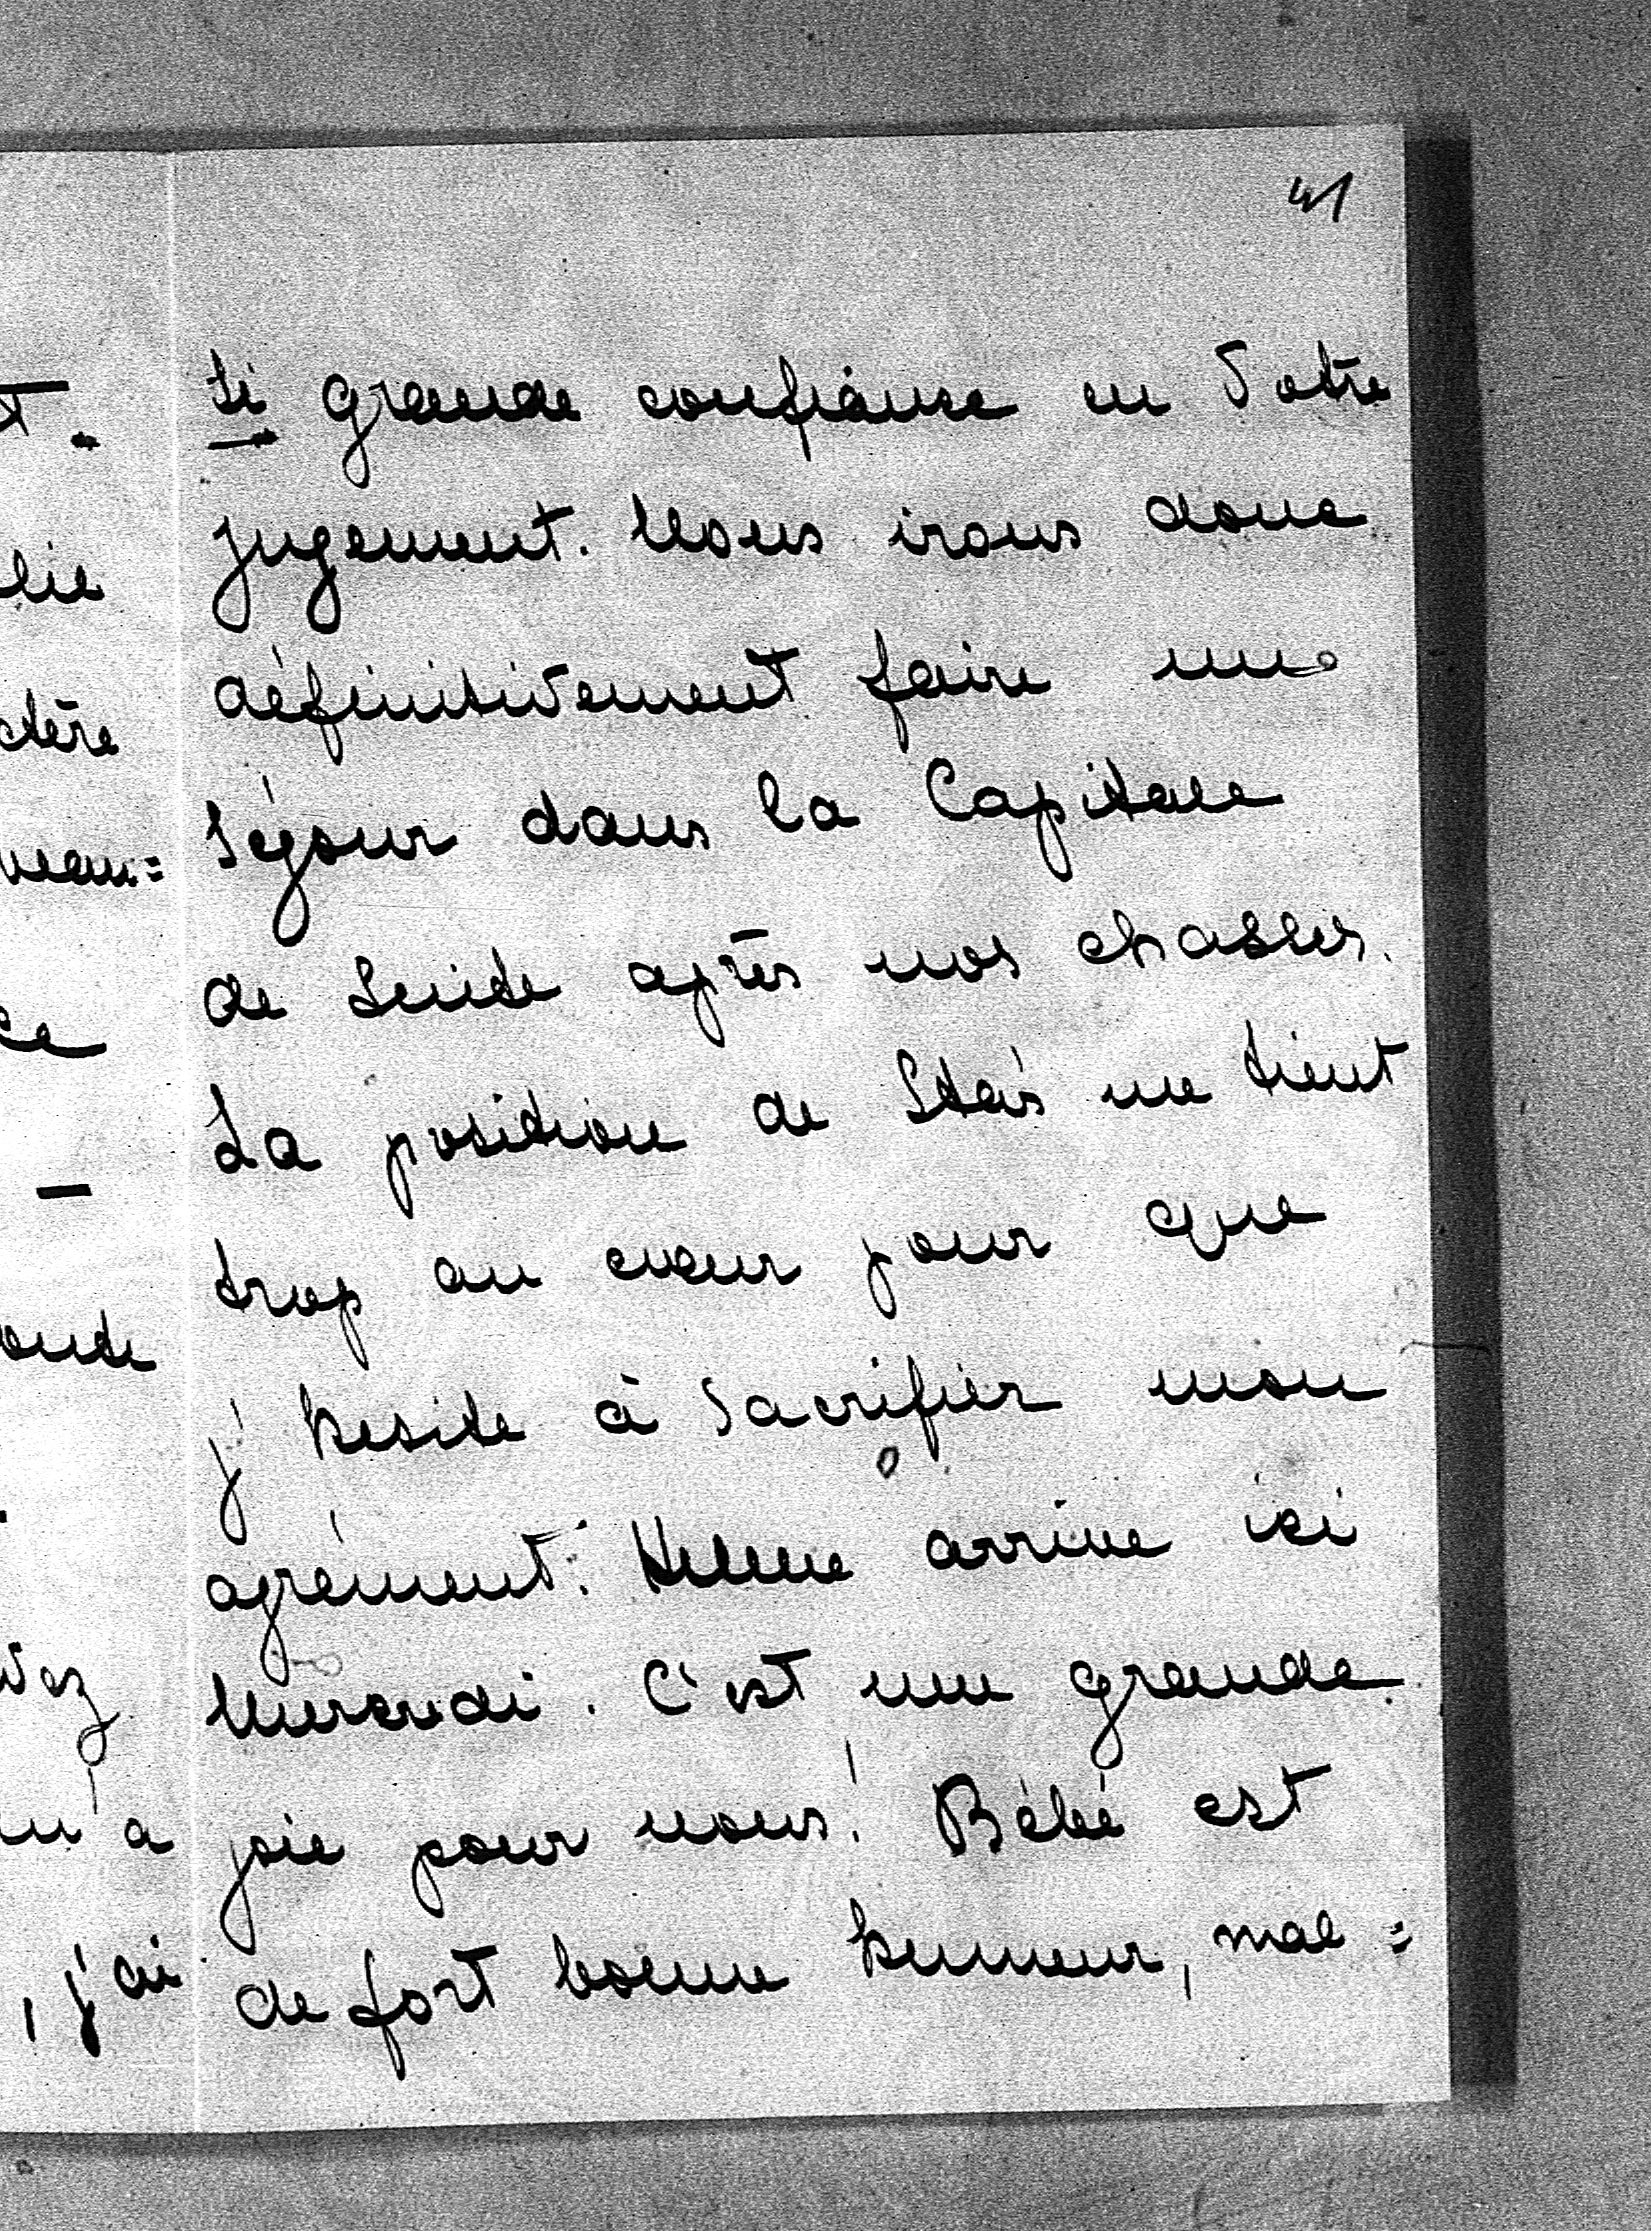 41
si grande confiance en Votre
jugement. Nous irons donc
définitivement faire un
séjour dans la Capitale
de suite après nos chasses.
La position de Staś me tient
trop au cœur pour que
j'hesite à sacrifier mon
agrément. Helene arrive ici
Mercredi. C'est une grande
joie pour nous! Bébé est
de fort bonne humeur, mal=